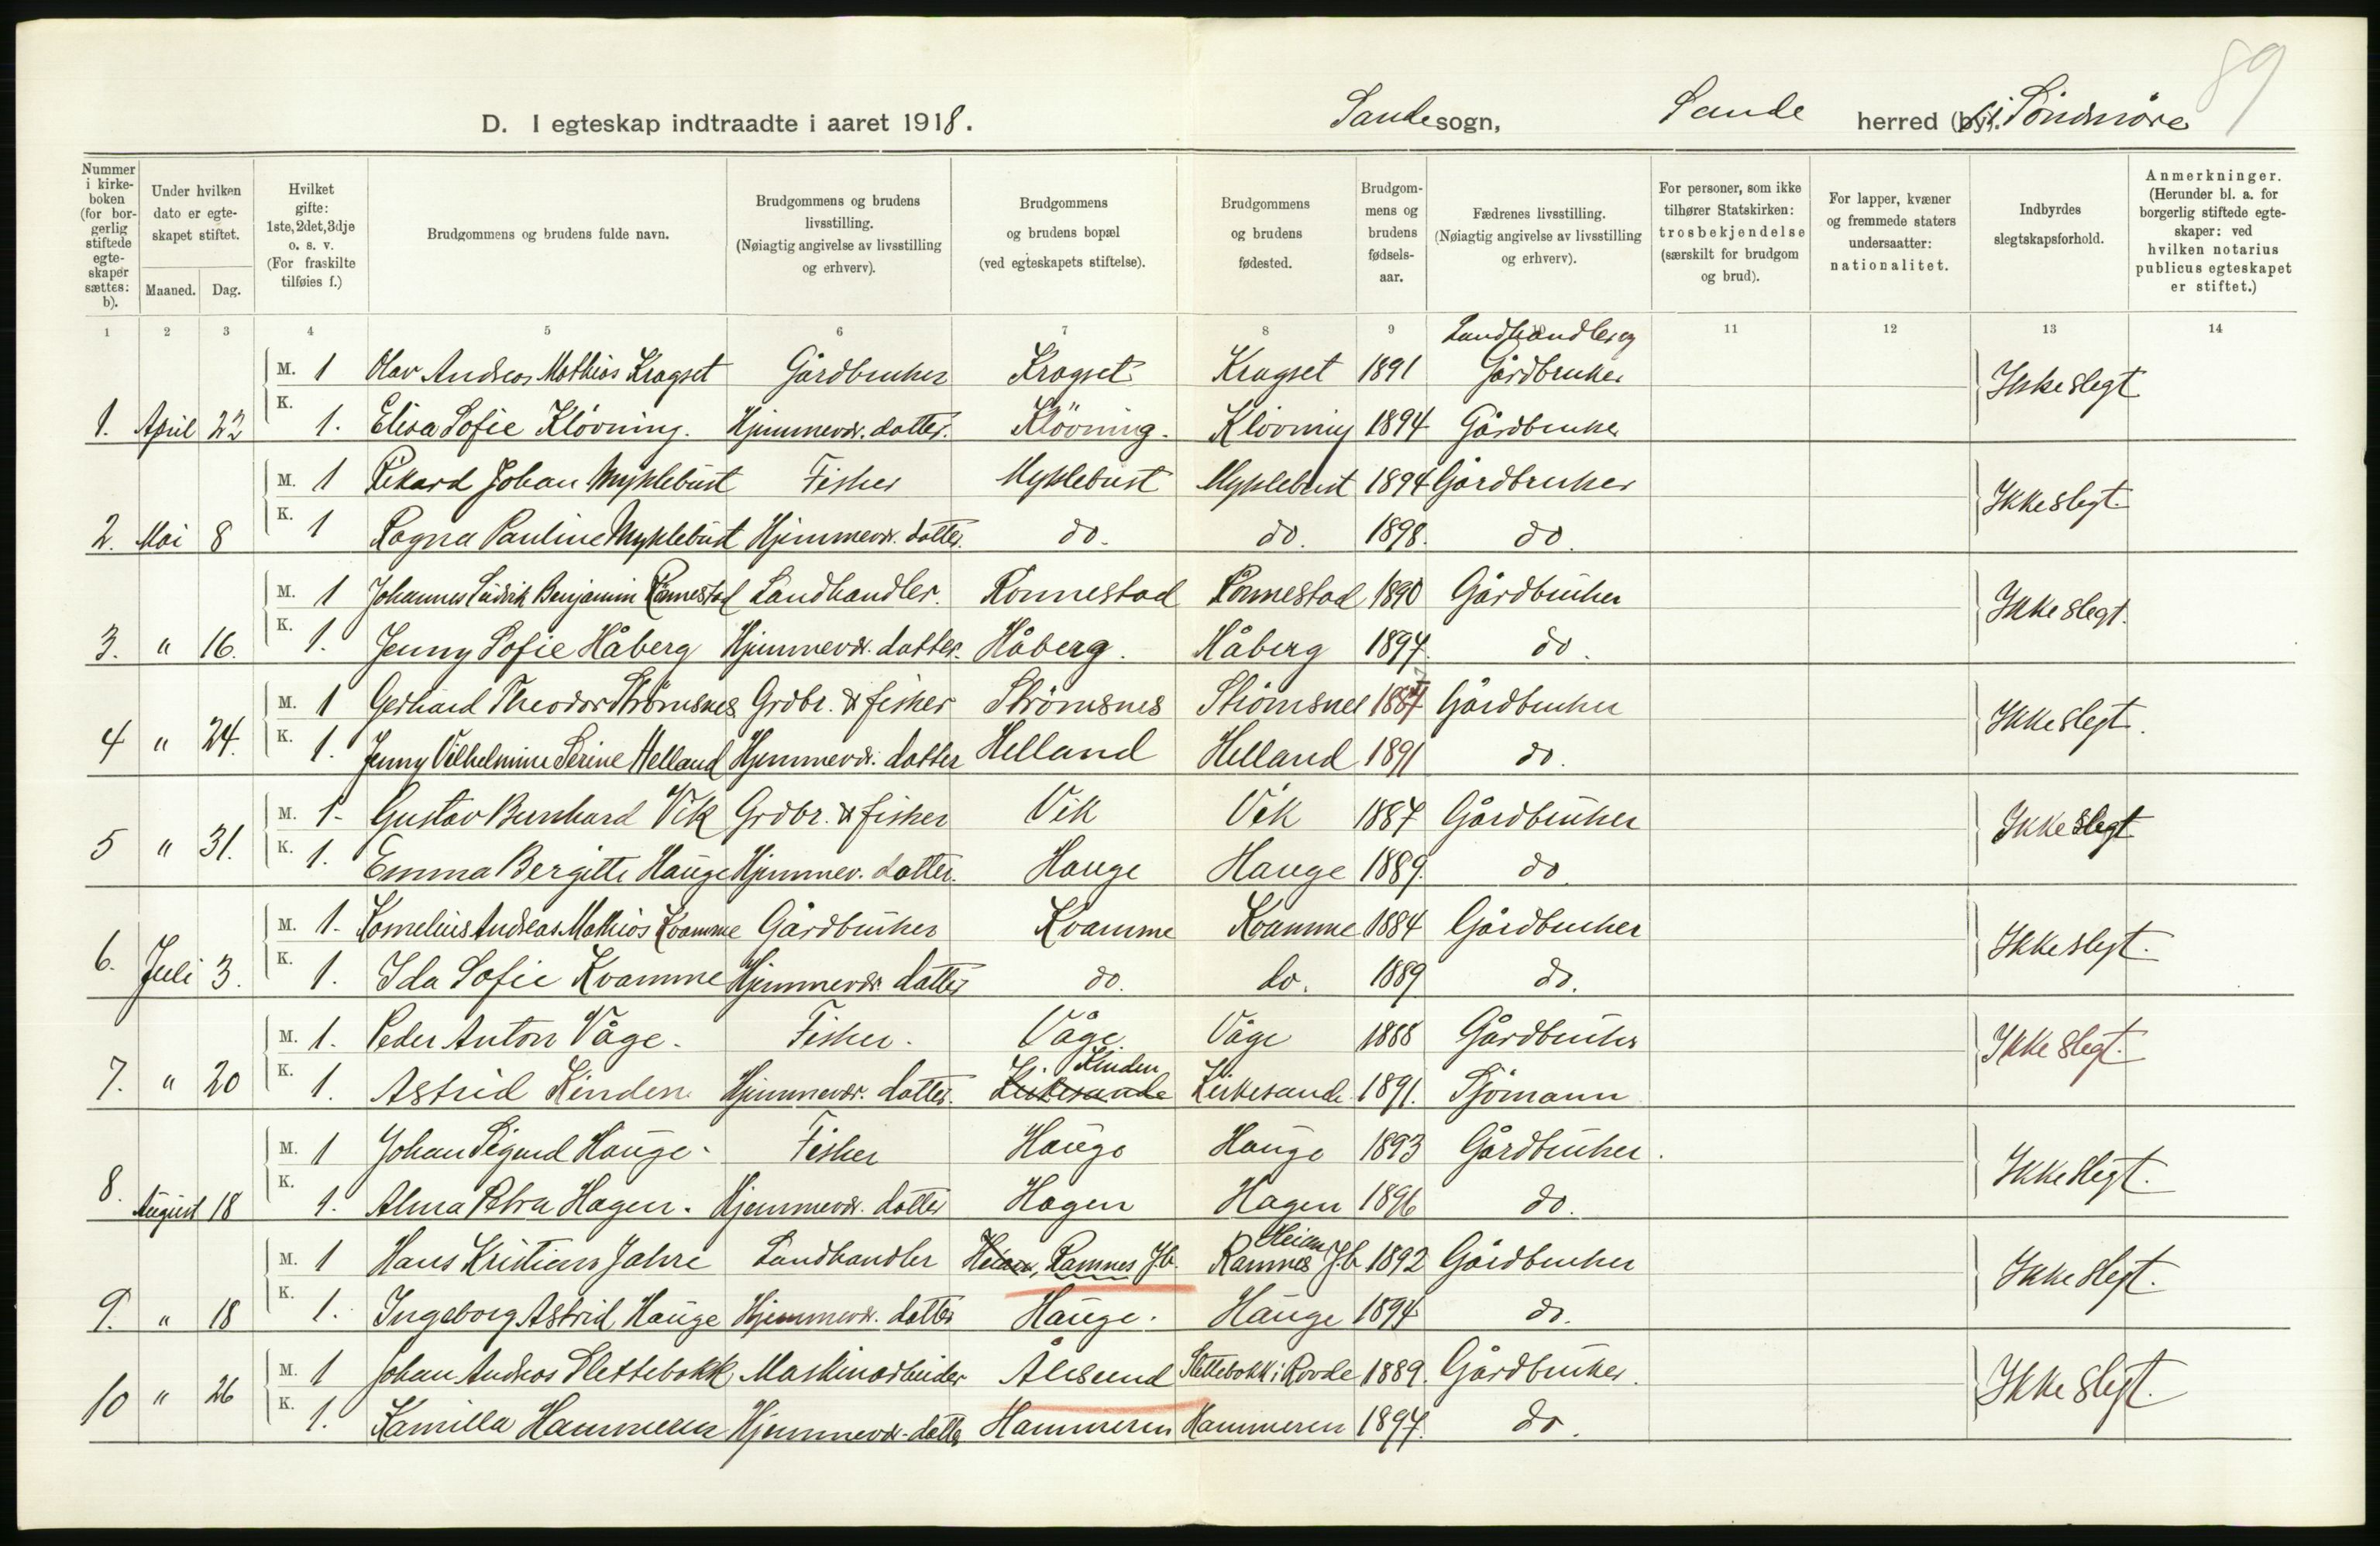 89
D. I egteskap indtraadte i aaret 1918. Sande sogn, Sande herred (by). i Söndmöre
Nummer i kirkeboken (for borgerlig stiftede egteskaper sættes: b).
Under hvilken dato er egteskapet stiftet.
Maaned. Dag.
Hvilket gifte: 1ste, 2det, 3dje o. s. v. (For fraskilte tilføies f.)
Brudgommens og brudens fulde navn.
Brudgommens og brudens livsstilling. (Nøiagtig angivelse av livsstilling og erhverv).
Brudgommens og brudens bopæl (ved egteskapets stiftelse).
Brudgommens og brudens fødested.
Brudgommens og brudens fødselsaar.
Fædrenes livsstilling. (Nøiagtig angivelse av livsstilling og erhverv).
For personer, som ikke tilhører Statskirken: trosbekjendelse (særskilt for brudgom og brud).
For lapper, kvæner og fremmede staters undersaatter: nationalitet.
Indbyrdes slegtskapsforhold.
Anmerkninger. (Herunder bl. a. for borgerlig stiftede egteskaper: ved hvilken notarius publicus egteskapet er stiftet.)
1 2 3 4 5 6 7 8 9 11 12 13 14
Landhandler og
M. 1 Olav Andreas Mathias Kragset Gårdbruker Kragset Kragset 1891 Gårdbruker Ikke slegt
1. April 22 K. 1. Elisa Sofie Klövning. Hjemmevær. datter. Klövning. Klövning 1894 Gårdbruker
M. 1 Rikard Johan Myklebust Fisker Myklebust Myklebust 1894 Gårdbruker Ikke slegt.
2. Mai 8 K. 1 Ragna Pauline Myklebust Hjemmevær. datter. do. do. 1898. do.
M. 1 Johannes Ludvik Benjamin Rönnestad Landhandler. Rönnestad Rönnestad 1890 Gårdbruker Ikke slegt.
3. " 16. K. 1. Jenny Sofie Håberg Hjemmevær. datter. Håberg. Håberg 1897. do.
M. 1 Gerhard Theodor Strömsnes Grdbr. & fisker Strömsnes Strömsnes 1887 Gårdbruker Ikke slegt.
4 " 24. K. 1. Jenny Vilhelmine Serine Helland Hjemmevær. datter Helland Helland 1891 do.
M. 1- Gustav Bernhard Vik Grdbr. & fisker Vik Vik 1887 Gårdbruker Ikke slegt
5 " 31. K. 1. Emma Bergitte Hauge Hjemmev. datter. Hauge Hauge 1889. do.
M. 1- Kornelius Andreas Mathias Kvamme Gårdbruker Kvamme Kvamme 1884 Gårdbruker Ikke slegt.
6. Juli 3. K. 1. Ida Sofie Kvamme Hjemmevær. datter do. do. 1889 do.
M. 1. Peder Anton Våge. Fisker. Våge Våge 1888 Gårdbruker Ikke slegt.
Kinden
7. " 20 K. 1. Astrid Kinden Hjemmevær. datter. Kirkesande Kirkesande 1891. Sjömann
M. 1 Johan Sigurd Hauge. Fisker Hauge Hauge 1893 Gårdbruker. Ikke slegt.
8. August 18 K. 1. Alma Petra Hagen. Hjemmevær. datter Hagen Hagen 1896 do.
Heian
M. 1 Hans Kristian Jahre Landhandler Heian, Ramnes J.b. Ramnes J.b 1892 Gårdbruker Ikke slegt.
9. " 18 K. 1. Ingeborg Astrid Hauge Hjemmevær. datter Hauge. Hauge 1894 do.
M. 1 Johan Andreas Slettebakk Maskinarbeider Ålesund Slettebakk i Rovde 1889. Gårdbruker. Ikke slegt.
10 " 26 K. 1. Kamilla Hammeren Hjemmevær. datter Hammeren Hammeren 1897. do.